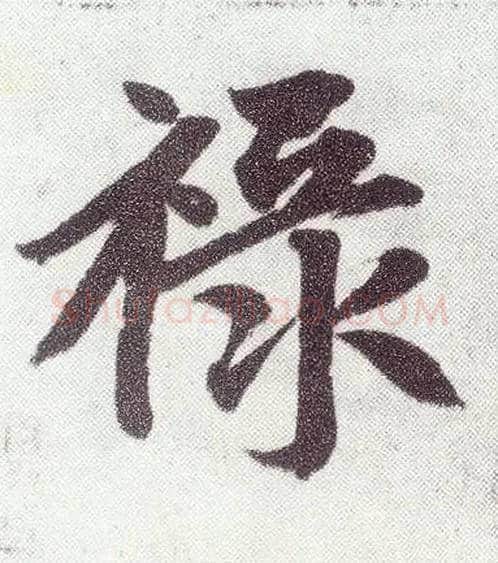 祿
shufaziliao.com